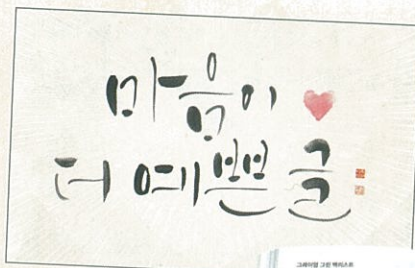 마음이
더 예쁜 글
그레이말 그린 캘리스트